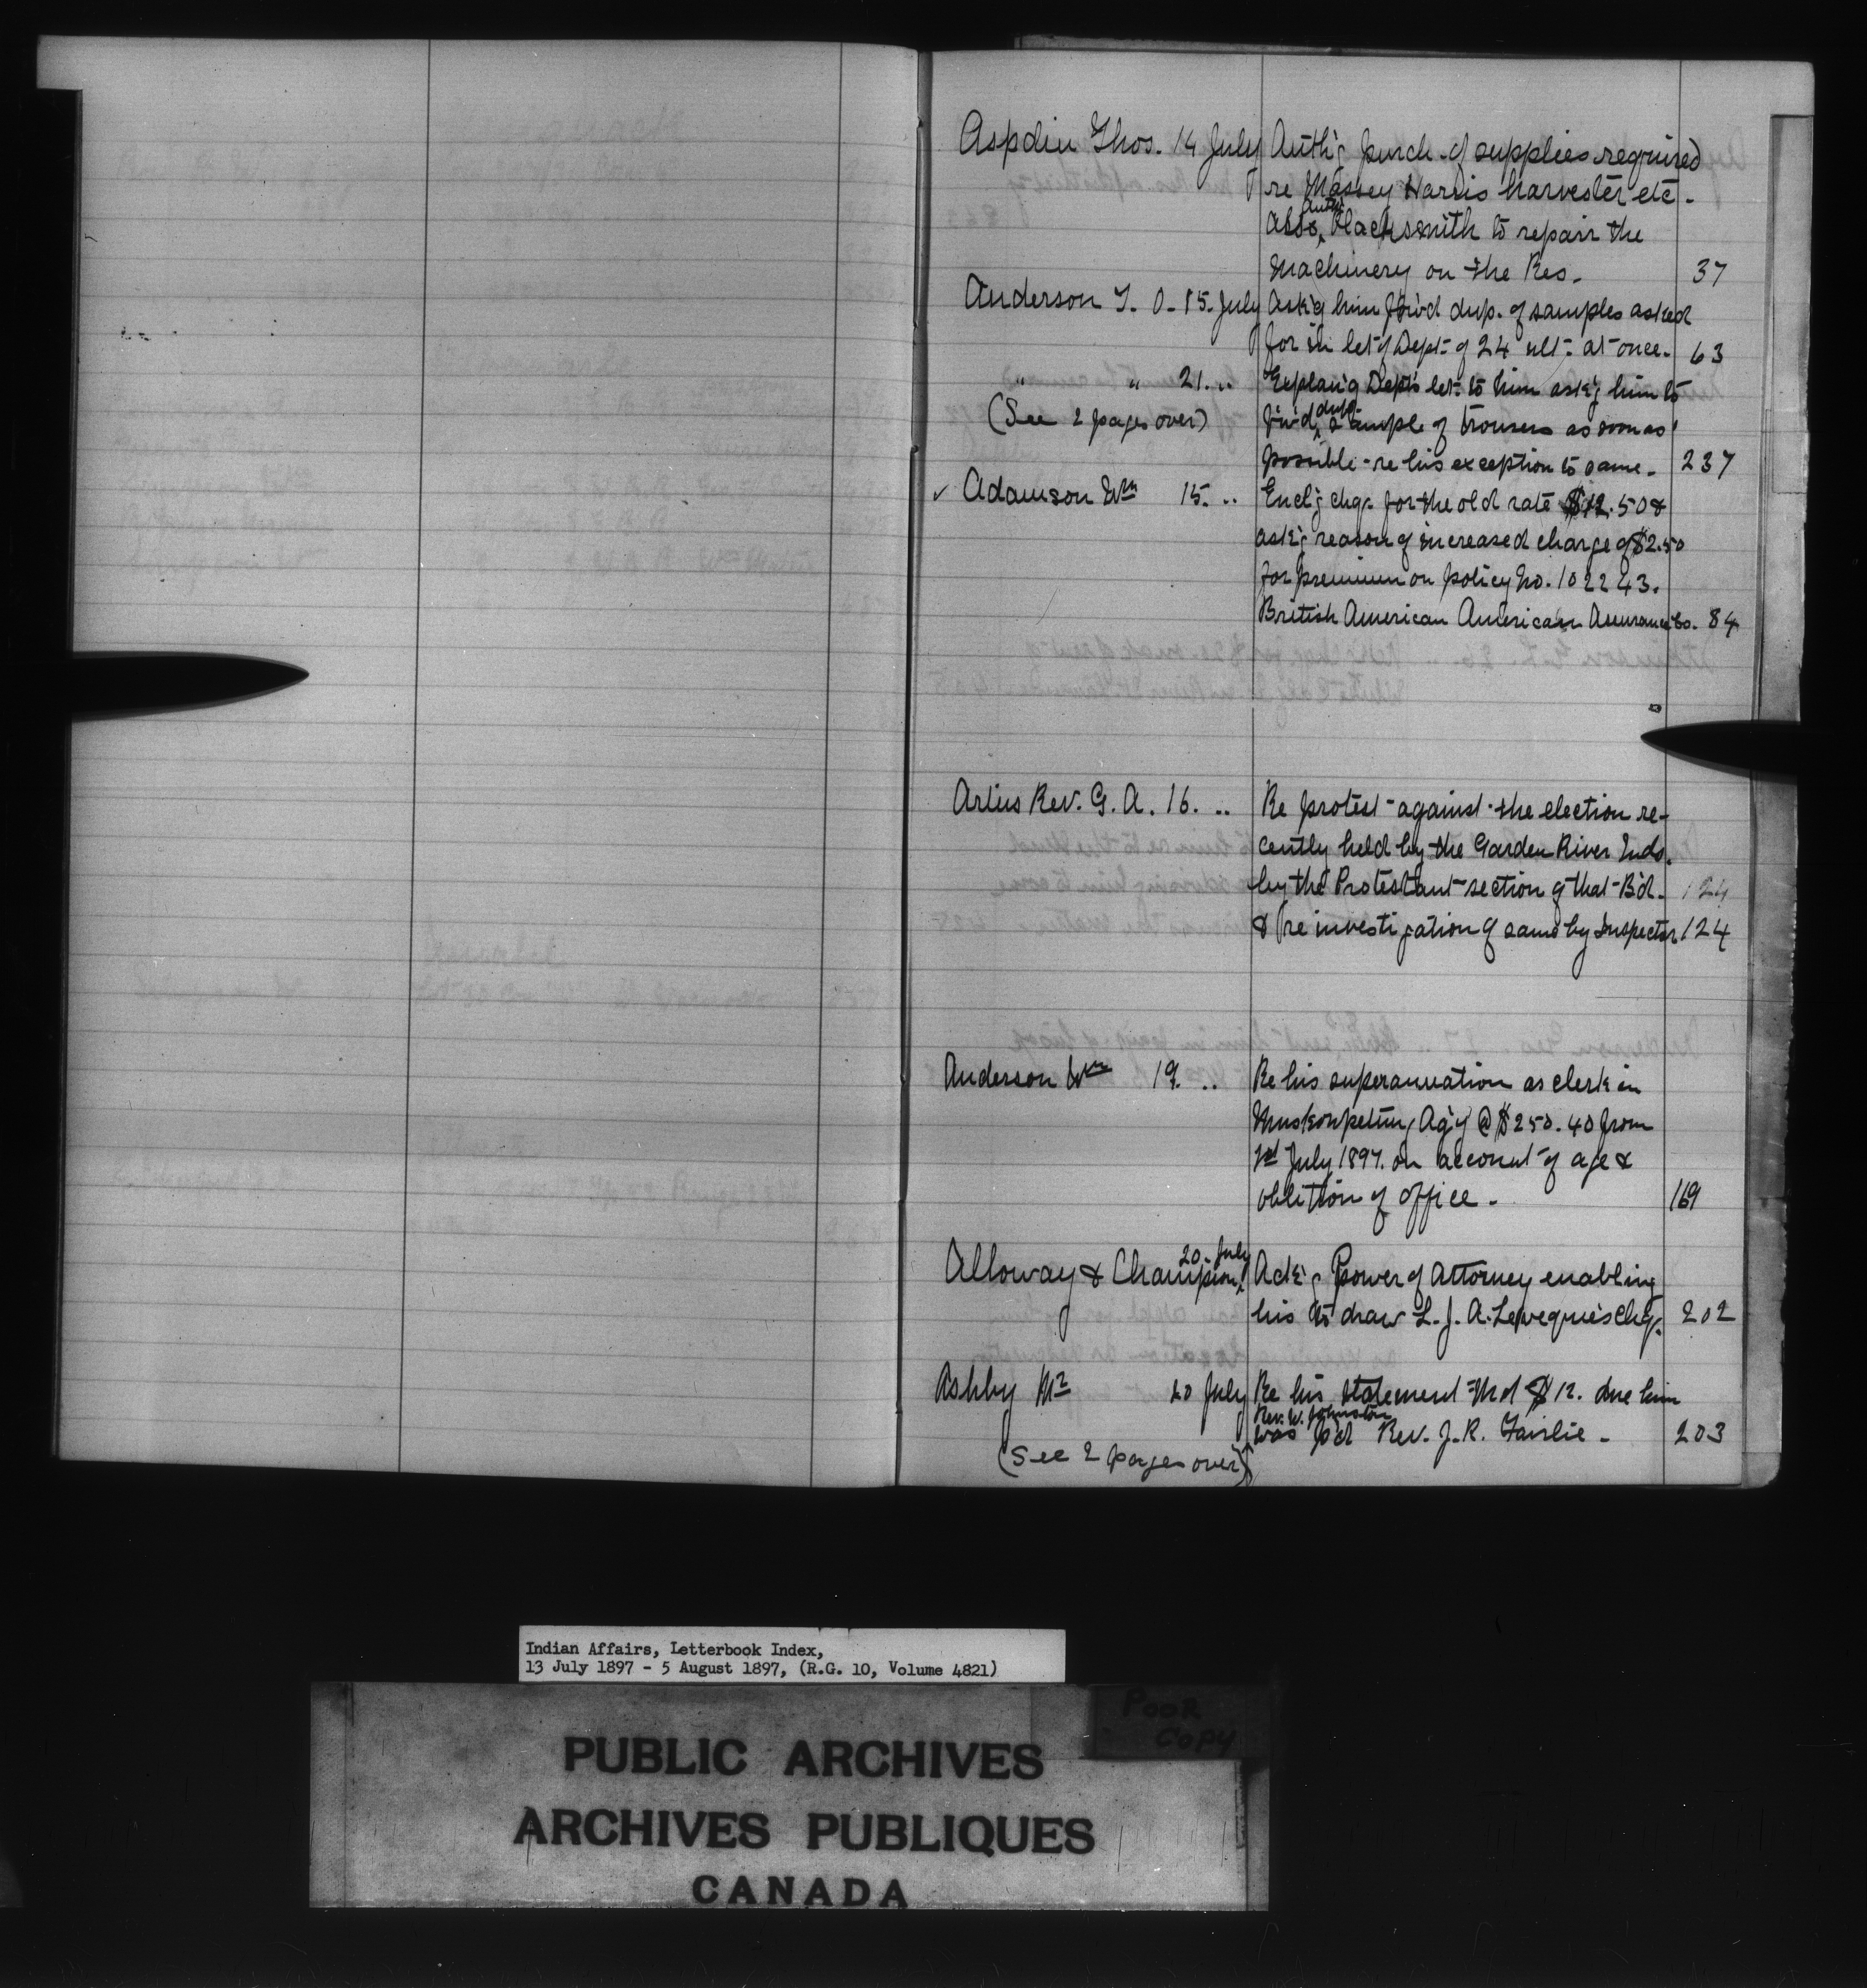 Aspdin Thos. 14 July Auth'g purch. of supplies required
re Massey Harris harvester etc.
Also, auth'g blacksmith to repair the
machinery on the Res. 37
Anderson T. O. 15. July Ask'g him forw'd dup. of samples asked
for in let of Dept. of 24 ult. at once. 63
" " 21. .. Explain'g Dept's let. to him ask'g him to
(See 2 pages over) forw'd dup. sample of trousers as soon as
possible - re his exception to same. 237
✓ Adamson Wm 15. .. Encl'g chq. for the old rate $12.50 &
ask'g reason of increased charge of $2.50
for premium on policy No. 102243.
British American American Assurance Co. 84
Artus Rev. G. A. 16. .. Re protest against the election re-
cently held by the Garden River Inds.
by the Protestant section of that Bd. 124
& re investigation of same by Inspector 124
Anderson Wm 19. .. Re his superannuation as clerk in
Muskowpetung Ag'y @ $250.40 from
1st July 1897. on account of age &
obolition of office. 169
Alloway & Champion, 20. July Ack'g Power of Attorney enabling
his to draw L. J. A. Leveque's chq. 202
Ashby Mr 20 July Re his statement that $12. due him
Rev. W. Johnston
was p'd Rev. J. R. Fairlie. 203
(See 2 pages over)
Indian Affairs, Letterbook Index,
13 July 1897 - 5 August 1897, (R.G. 10, Volume 4821)
POOR
COPY
PUBLIC ARCHIVES
ARCHIVES PUBLIQUES
CANADA